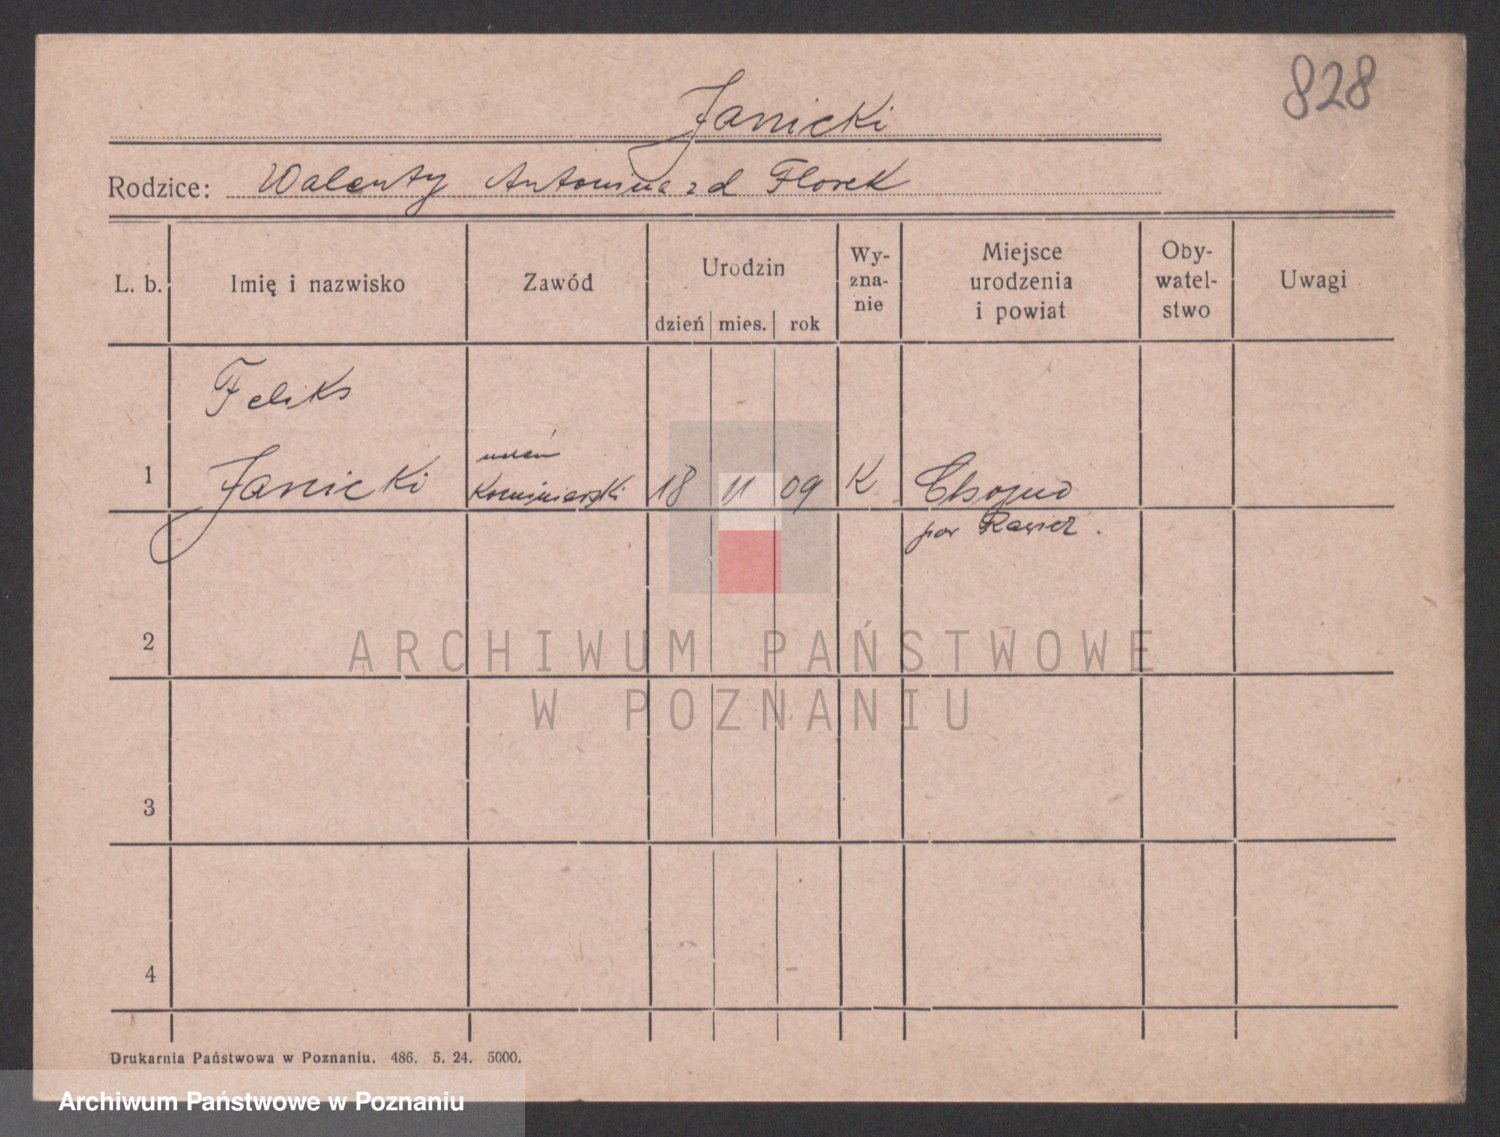 828
Janicki
Rodzice: Walenty Antonina zd Florek
L. b.
Imię i nazwisko
Zawód
Urodzin
dzień mies. rok
Wy-
zna-
nie
Miejsce
urodzenia
i powiat
Oby-
watel-
stwo
Uwagi
1
Feliks
Janicki
uczeń
Kominiarski
18 11 09
K
Chojno
pow Rawicz.
2
3
4
ARCHIWUM PAŃSTWOWE
W POZNANIU
Drukarnia Państwowa w Poznaniu. 486. 5. 24. 5000.
Archiwum Państwowe w Poznaniu